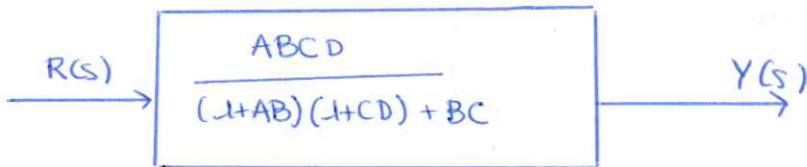 R(s)
ABCD
(1+AB)(1+CD) + BC
Y(s)